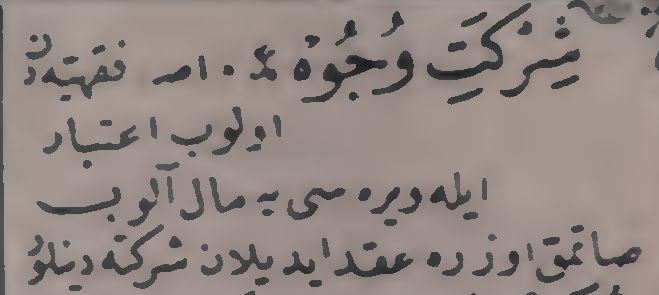 شِرْكَتِ وُجُوْهْ اصـ فقهيه‌دن
اولوب اعتبار
ايله ويره سى يه مال آلوب
صاتمق اوزره عقد ايديلان شركته دينلور